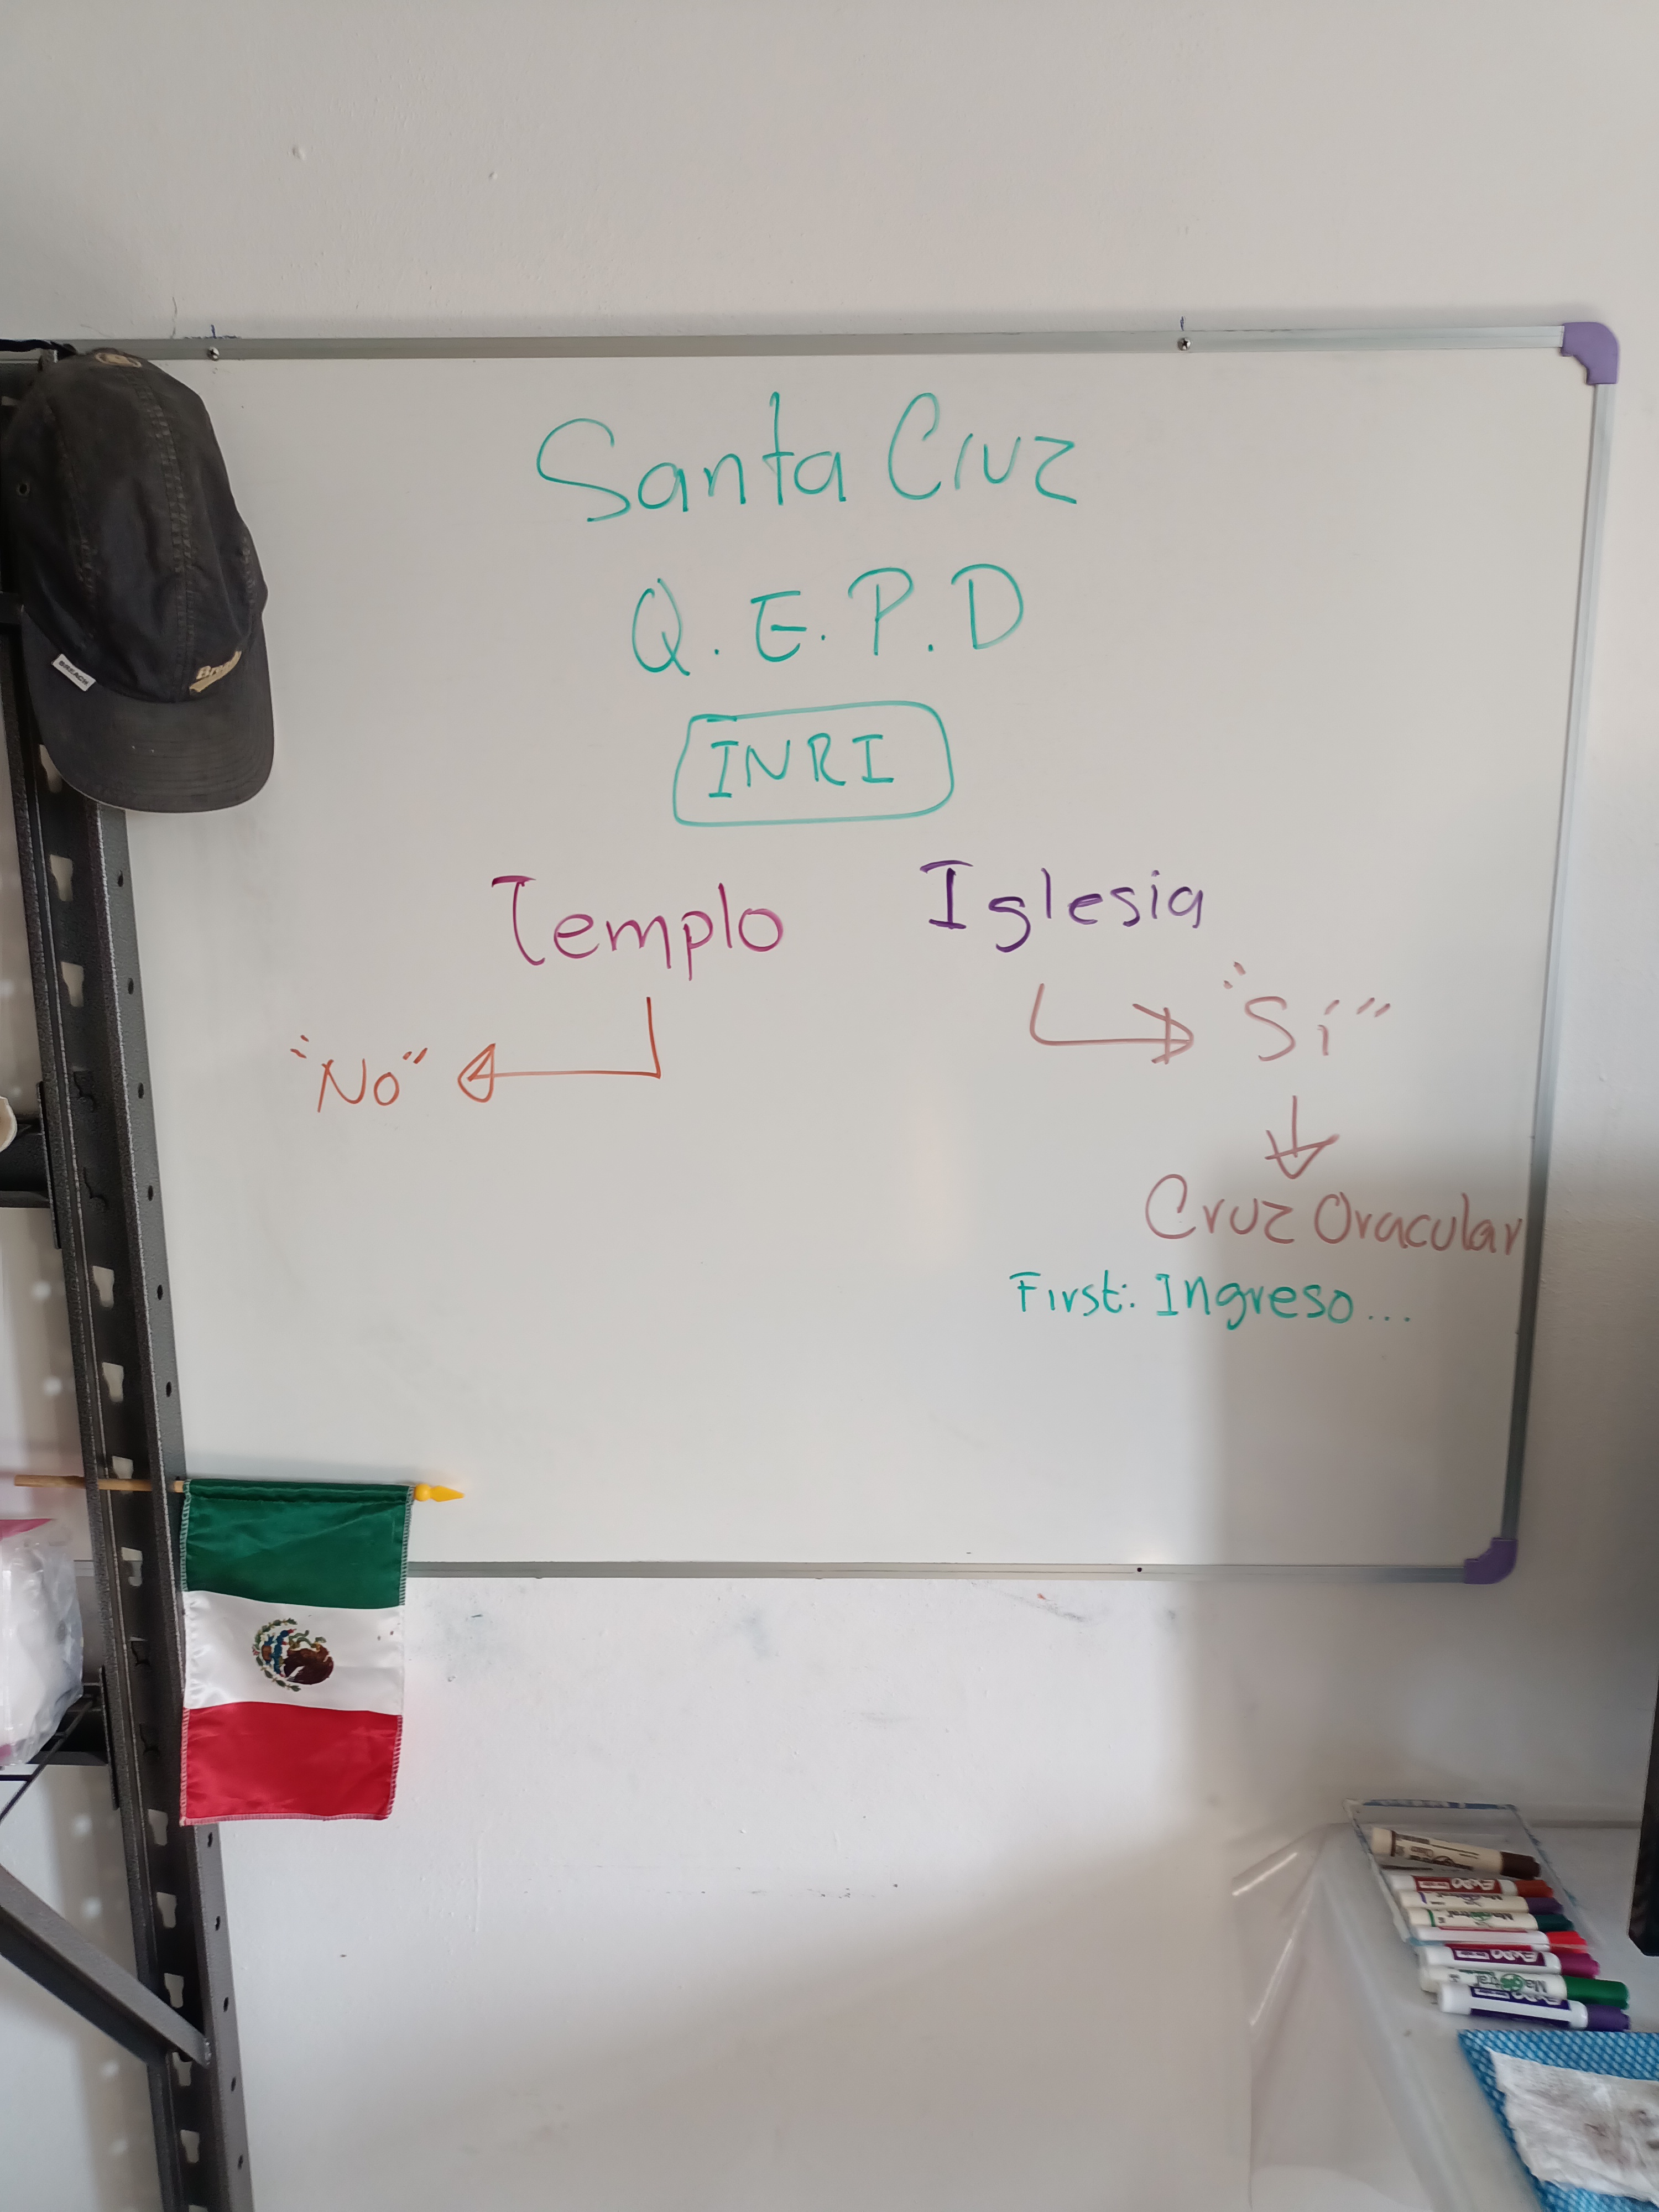 Santa Cruz
Q.E.P.D
INRI
Templo Iglesia
"No" "Sí"
Cruz Oracular
First: Ingreso...
BREACH